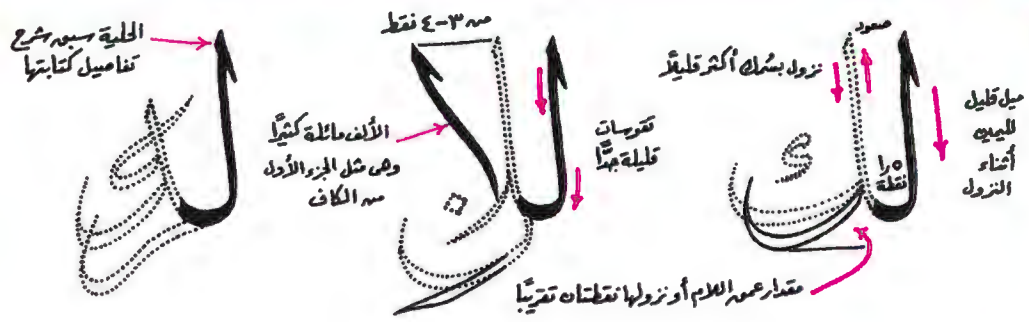 صعود
نزول بسُمك أكثر قليلاً
ميل قليل
لليمين
أثناء
النزول
١٫٥
نقطة
مقدار عمق اللام أو نزولها نقطتان تقريبًا
من ٣-٤ نقط
تقوسات
قليلة جدًّا
الألف مائلة كثيرًا
وهى مثل الجزء الأول
من الكاف
الحلية سبق شرح
تفاصيل كتابتها